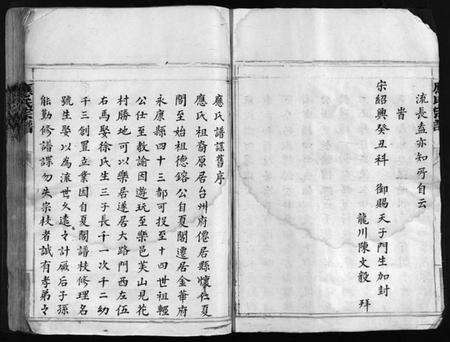 流長盍亦知所自云
旹
宋紹興癸丑科　御賜天子門生加封
龍川陳文毅　拜
應氏譜諜舊序
應氏祖裔原居台州府僊居縣懷仁夏
閣至始祖德鎔公自夏閣遷居金華府
永康縣四十三都可投至十四世祖輕
公仕至教諭因遊玩至樂邑芙山見花
村勝地可以樂居遂居大路門西左伍
右馬娶徐氏生三子長千一次千二幼
千三創置立業因自夏閣譜枝修理名
號生娶以為派世久遠々計厥后子孫
能勤修譜諜勿失宗枝者誠有孝弟々